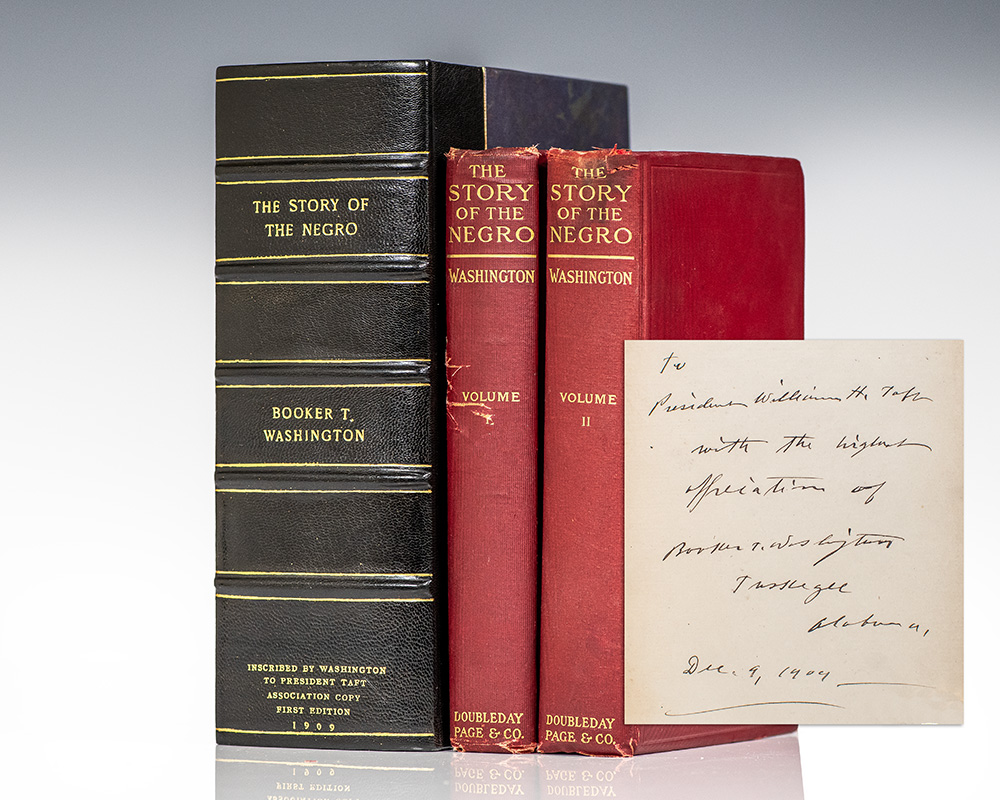 THE STORY OF
THE NEGRO
BOOKER T.
WASHINGTON
INSCRIBED BY WASHINGTON
TO PRESIDENT TAFT
ASSOCIATION COPY
FIRST EDITION
1909
THE
STORY
OF THE
NEGRO
WASHINGTON
VOLUME
I
DOUBLEDAY
PAGE & CO.
THE
STORY
OF THE
NEGRO
WASHINGTON
VOLUME
II
DOUBLEDAY
PAGE & CO.
To
President William H. Taft
with the highest
of
Booker T. Washington
Tuskegee
Alabama,
Dec. 9, 1909